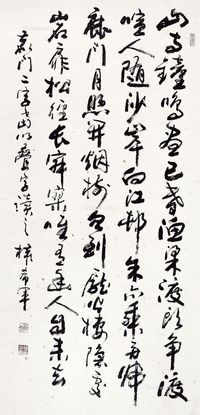 山寺鐘鳴晝已昏漁梁渡頭爭渡
喧人隨沙岸向江村余亦乘舟歸
鹿門月照開煙樹忽到龐公棲隱處
岩扉松徑長寂寥唯有幽人自來去
鹿門二字當以疊字讀之